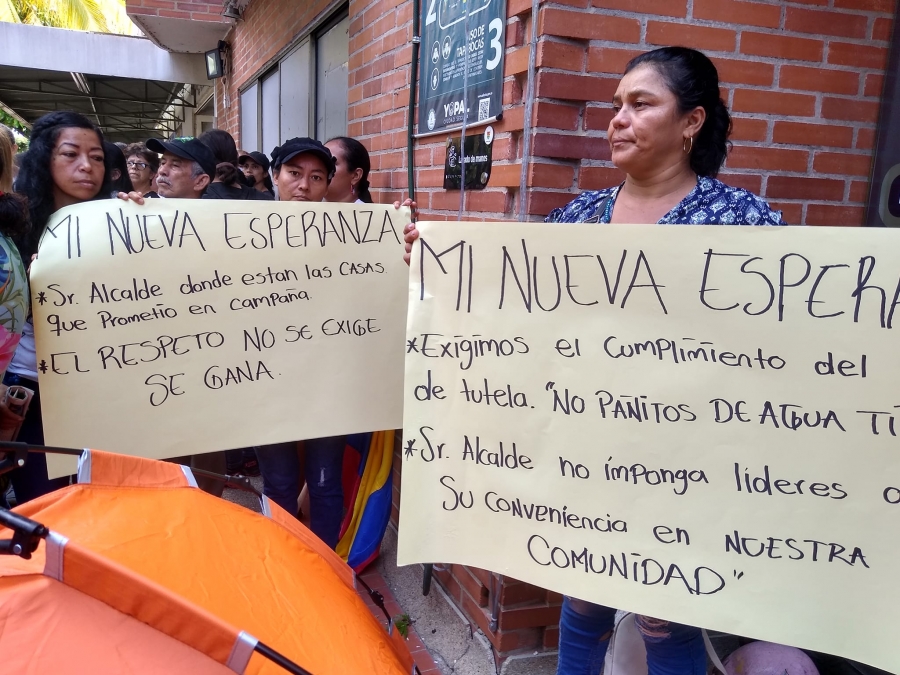 MI NUEVA ESPERANZA
*Sr. Alcalde donde estan las casas
que Prometio en campaña.
*EL RESPETO NO SE EXIGE
SE GANA.
MI NUEVA ESPERA
*Exigimos el cumplimiento del
de tutela. "NO PAÑITOS DE AGUA TI
*Sr. Alcalde no imponga líderes a
Su conveniencia en NUESTRA
COMUNIDAD"
2
USO DE
TAPABOCAS
3
YOPAL
Lavado de manos